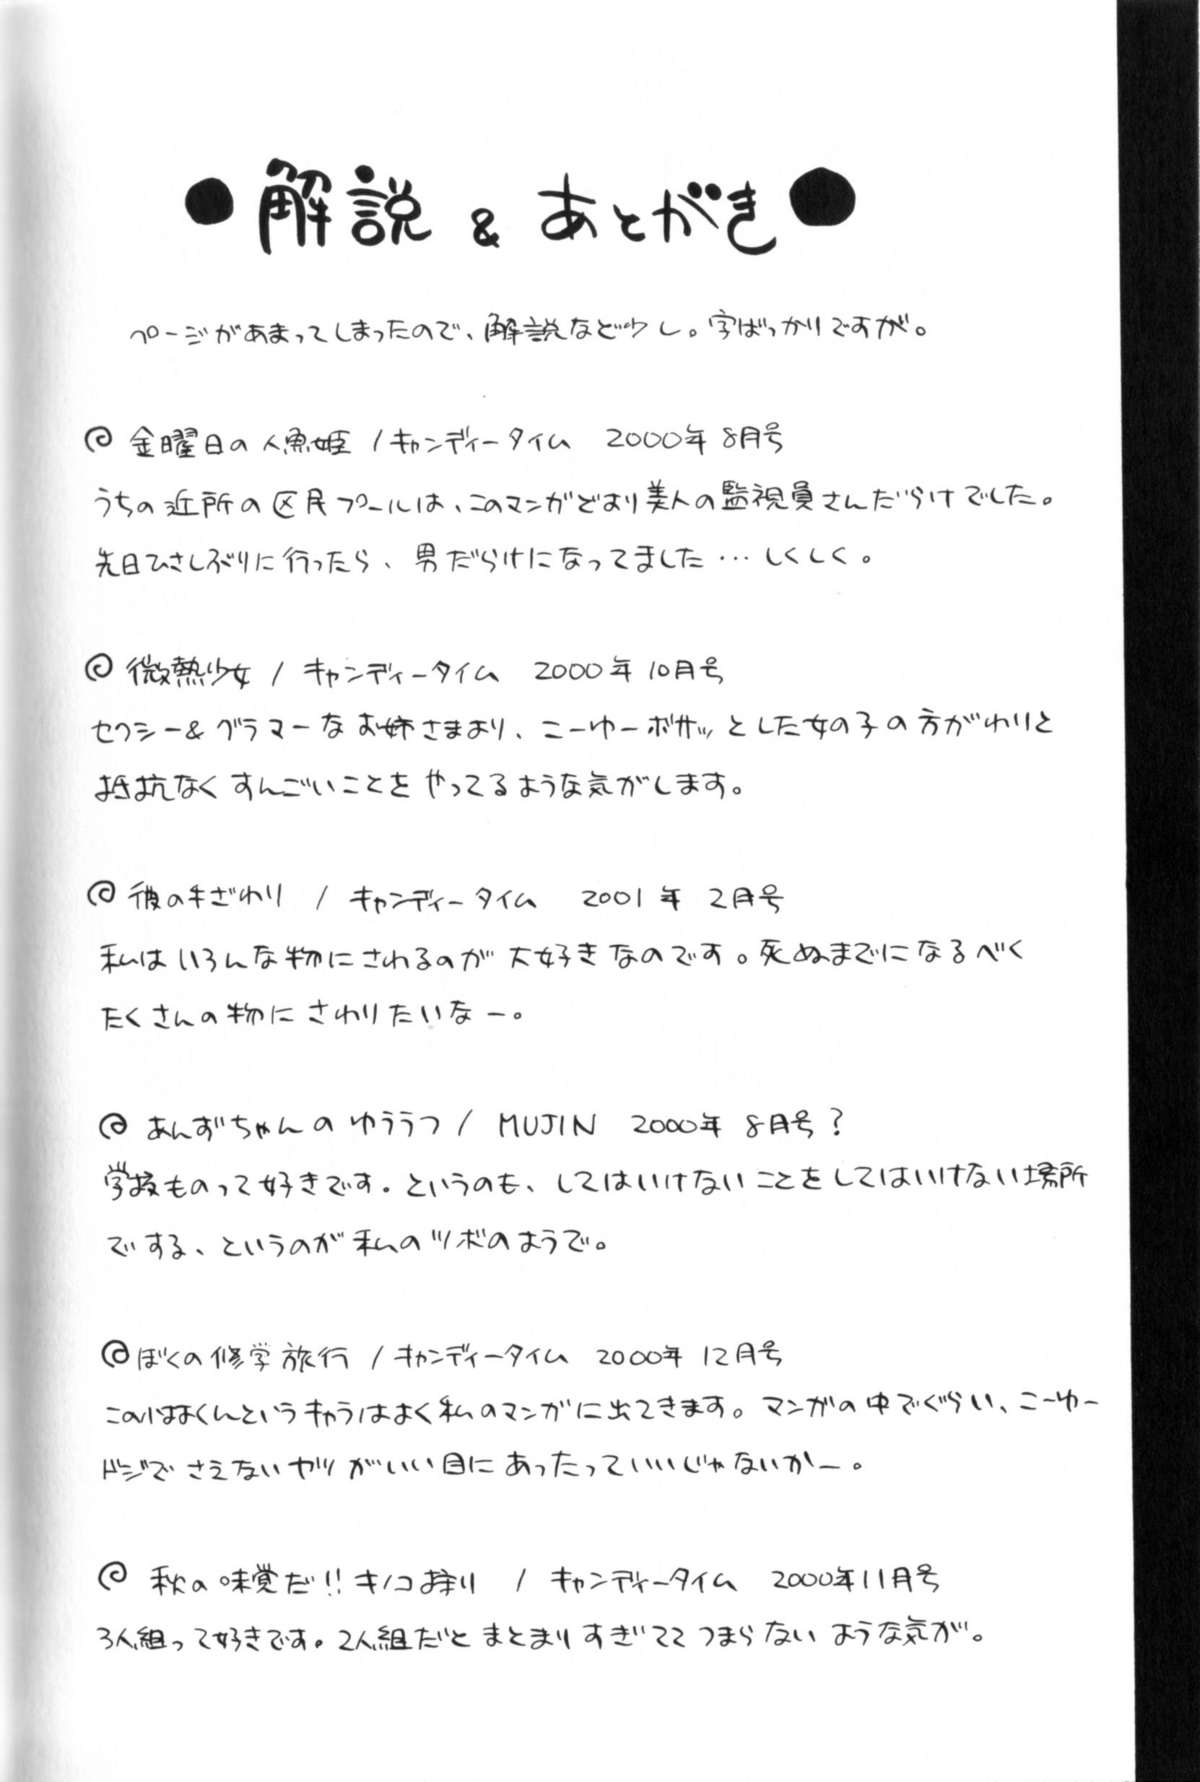 ●解説 & あとがき●
ページがあまってしまったので、解説など少し。字ばっかりですが。
金曜日の人魚姫 / キャンディータイム 2000年8月号
うちの近所の区民プールは、このマンガどより美人の監視員さんだらけでした。
先日ひさしぶりに行ったら、男だらけになってました…しくしく。
微熱少女 / キャンディータイム 2000年10月号
セクシー&グラマーなお姉さまより、こーゆーボサッとした女の子の方がわりと
抵抗なくすんごいことをやってるような気がします。
彼の手ざわり / キャンディータイム 2001年2月号
私はいろんな物にさわるのが大好きなのです。死ぬまでになるべく
たくさんの物にさわりたいなー。
あんずちゃんのゆううつ / MUJIN 2000年8月号?
学校ものって好きです。というのも、してはいけないことをしてはいけない場所
でする、というのが私のツボのようで。
ぼくの修学旅行 / キャンディータイム 2000年12月号
くんというキャラはよく私のマンガに出てきます。マンガの中でぐらい、こーゆー
ドジでさえないヤツがいい目にあったっていいじゃないかー。
秋の味覚だ!!キノコ狩り / キャンディータイム 2000年11月号
3人組って好きです。2人組だとまとまりすぎててつまらないような気が。